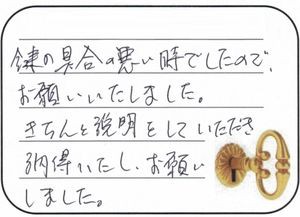 鍵の具合の悪い時でしたので、
お願いいたしました。
きちんと説明をしていただき
納得いたし、お願い
しました。